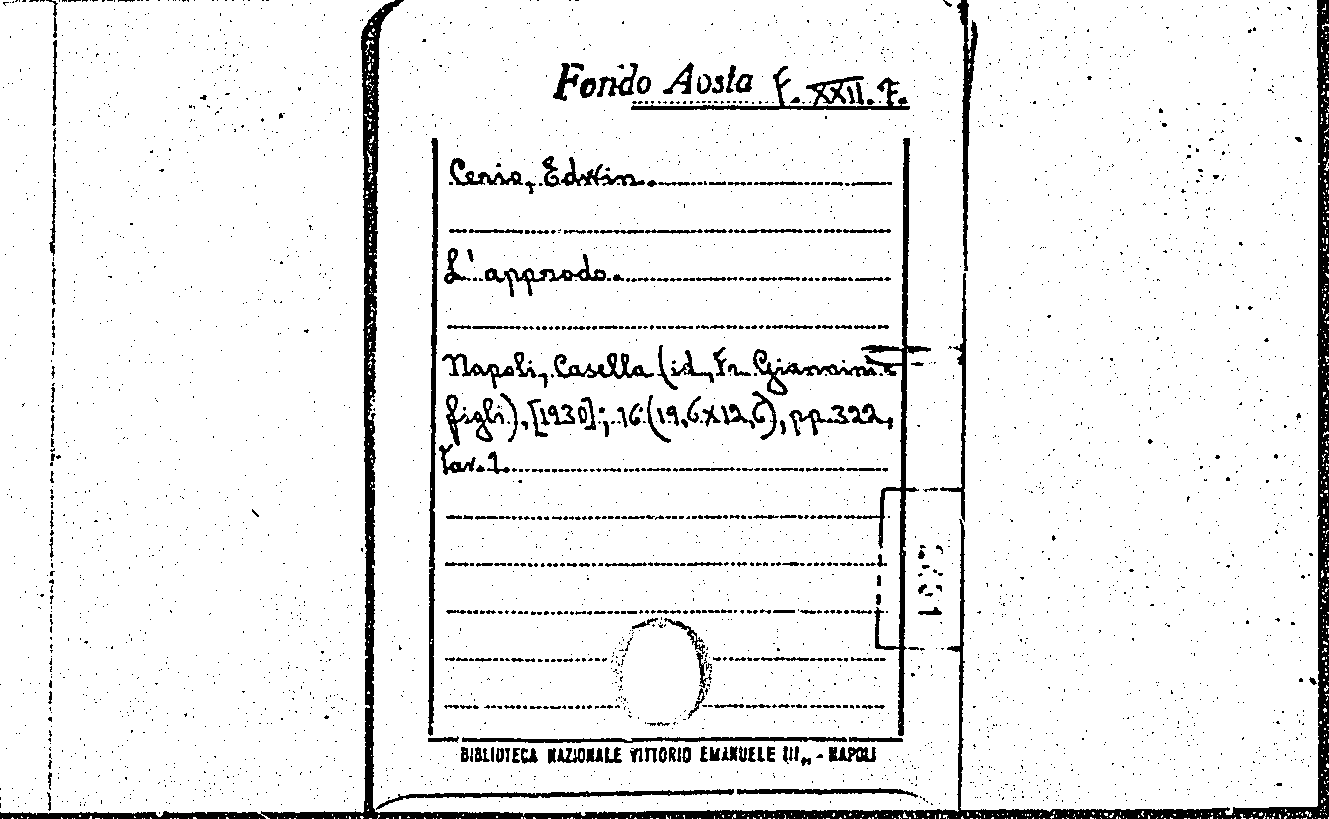 Fondo Aosta F. XXII. F.
Cerio, Edwin.
L'approdo.
Napoli, Casella (id, Fr. Giannini e
figli), [1930]; 16 (19,6x12,6), pp. 322,
tav. 1.
BIBLIOTECA NAZIONALE VITTORIO EMANUELE III„ - NAPOLI